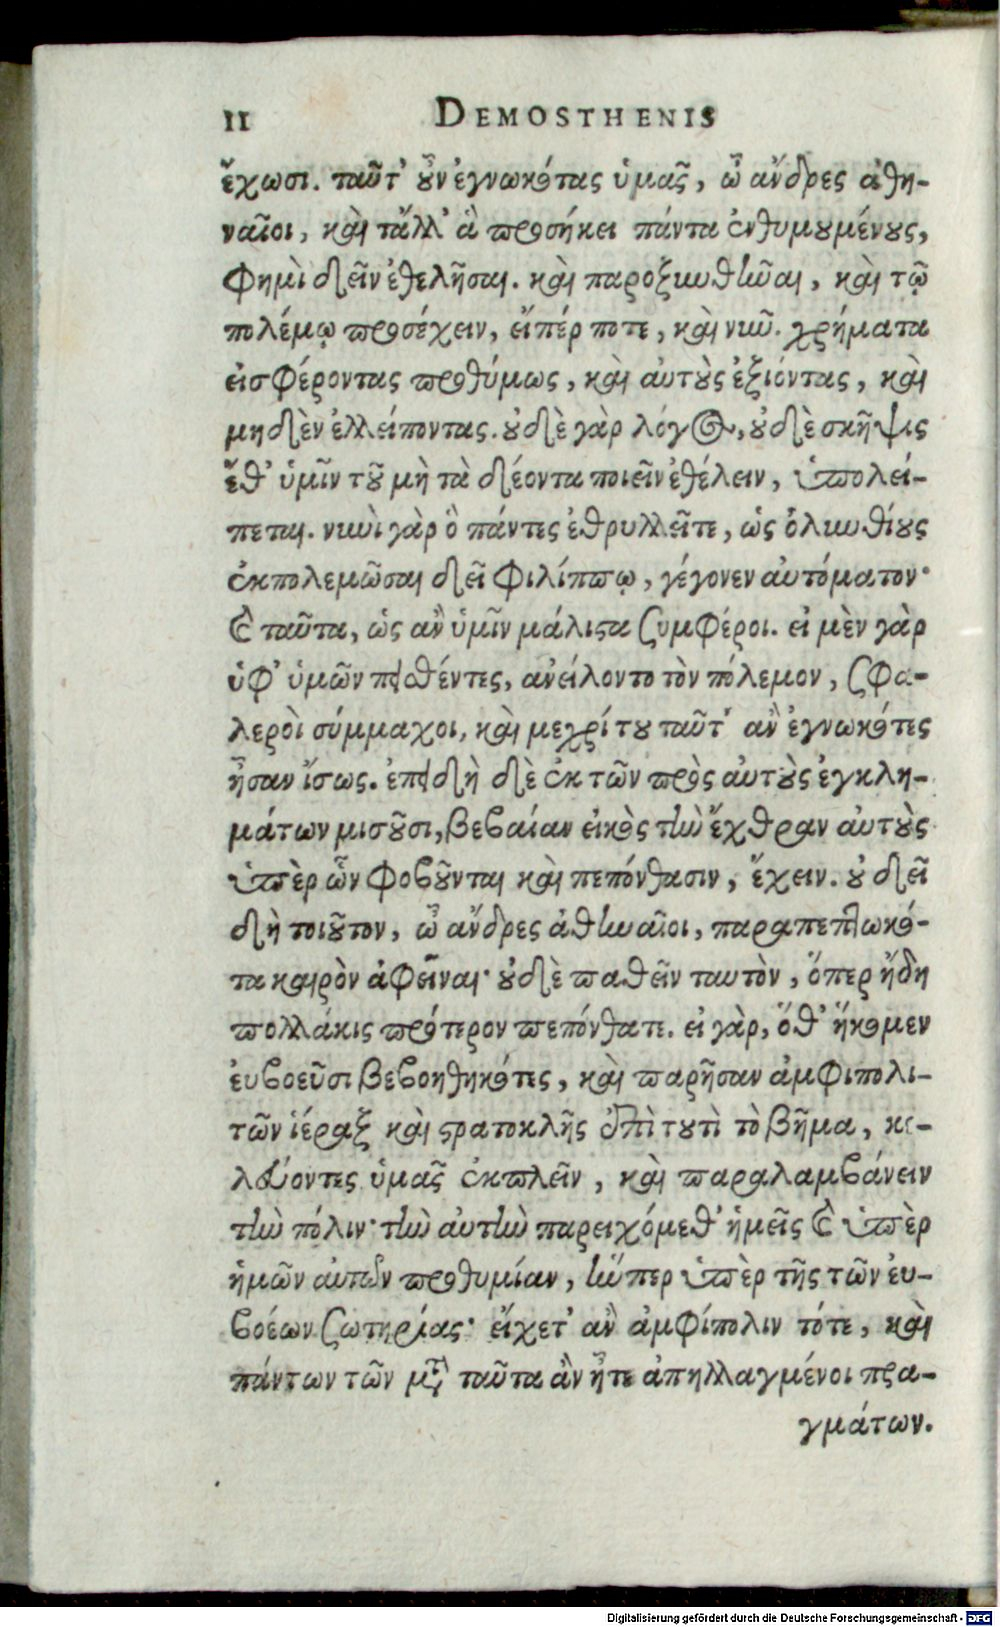 II DEMOSTHENIS
ἔχωσι. ταῦτ' οὖν ἐγνωκότας ὑμᾶς, ὦ ἄνδρες ἀθη-
ναῖοι, καὶ τἄλλ' ἃ προσήκει πάντα ἐνθυμουμένους,
φημὶ δεῖν ἐθελῆσαι. καὶ παροξυνθῆναι, καὶ τῷ
πολέμῳ προσέχειν, εἴπέρ ποτε, καὶ νῦν. χρήματα
εἰσφέροντας προθύμως, καὶ αὐτοὺς ἐξιόντας, καὶ
μηδὲν ἐλλείποντας. οὐδὲ γὰρ λόγος, οὐδὲ σκῆψις
ἔθ' ὑμῖν τοῦ μὴ τὰ δέοντα ποιεῖν ἐθέλειν, ὑπολεί-
πεται. νυνὶ γὰρ ὃ πάντες ἐθρυλλεῖτε, ὡς ὀλυνθίους
ἐκπολεμῶσαι δεῖ Φιλίππῳ, γέγονεν αὐτόματον·
καὶ ταῦτα, ὡς ἂν ὑμῖν μάλιστα συμφέροι. εἰ μὲν γὰρ
ὑφ' ὑμῶν πεισθέντες, ἀνείλοντο τὸν πόλεμον, σφα-
λεροὶ σύμμαχοι, καὶ μεχρί του ταῦτ' ἂν ἐγνωκότες
ἦσαν ἴσως. ἐπειδὴ δὲ ἐκ τῶν πρὸς αὐτοὺς ἐγκλη-
μάτων μισοῦσι, βεβαίαν εἰκὸς τὴν ἔχθραν αὐτοὺς
ὑπὲρ ὧν φοβοῦνται καὶ πεπόνθασιν, ἔχειν. οὐ δεῖ
δὴ τοιοῦτον, ὦ ἄνδρες ἀθηναῖοι, παραπεπτωκό-
τα καιρὸν ἀφεῖναι· οὐδὲ παθεῖν ταυτὸν, ὅπερ ἤδη
πολλάκις πρότερον πεπόνθατε. εἰ γὰρ, ὅθ' ἥκομεν
εὐβοεῦσι βεβοηθηκότες, καὶ παρῆσαν ἀμφιπολι-
τῶν ἱέραξ καὶ στρατοκλῆς ἐπὶ τουτὶ τὸ βῆμα, κε-
λεύοντες ὑμᾶς ἐκπλεῖν, καὶ παραλαμβάνειν
τὴν πόλιν· τὴν αὐτὴν παρειχόμεθ' ἡμεῖς καὶ ὑπὲρ
ἡμῶν αὐτῶν προθυμίαν, ἥνπερ ὑπὲρ τῆς τῶν εὐ-
βοέων σωτηρίας· εἴχετ' ἂν ἀμφίπολιν τότε, καὶ
πάντων τῶν μετὰ ταῦτα ἂν ἦτε ἀπηλλαγμένοι πρα-
γμάτων.
Digitalisierung gefördert durch die Deutsche Forschungsgemeinschaft - DFG